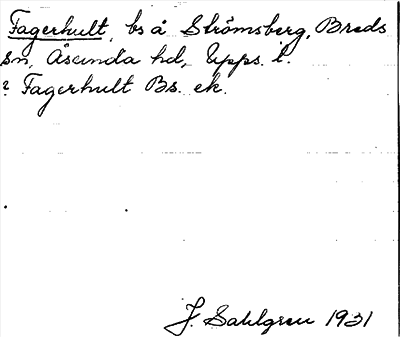 Fagerhult, bs å Strömsberg, Breds
sn, Åsunda hd, Upps. l.
? Fagerhult Bs. ek.
J. Sahlgren 1931